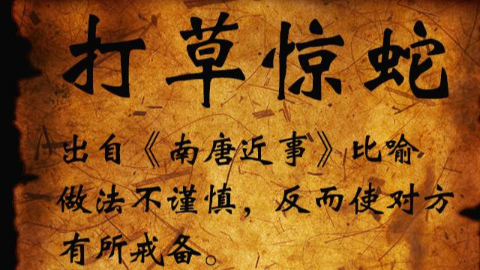 打草惊蛇
出自《南唐近事》比喻
做法不谨慎，反而使对方
有所戒备。